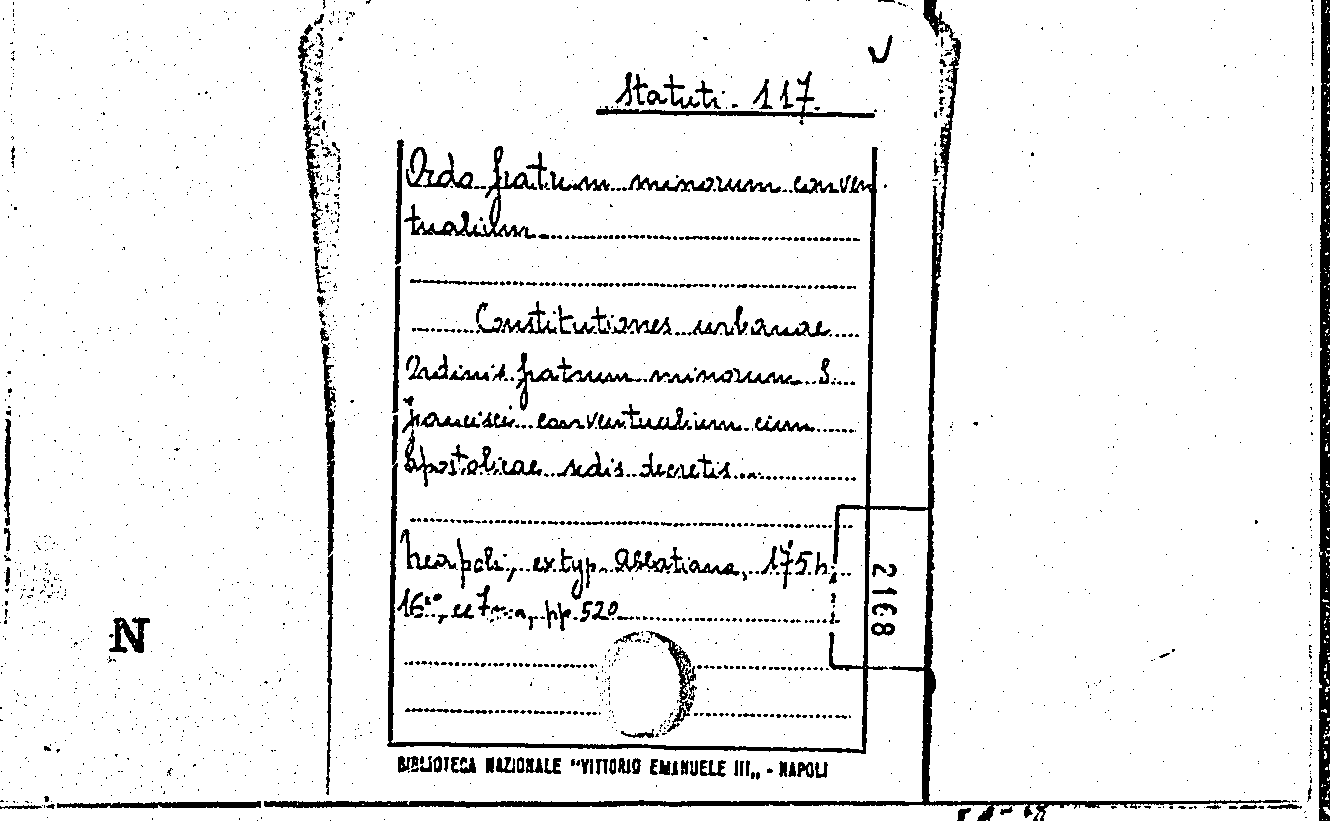 Statuti. 117.
Ordo fratrum minorum conven-
tualium
Constitutiones urbanae
Ordinis fratrum minorum S.
francisci conventualium cum
Apostolicae sedis decretis...
Neapoli, ex typ. Abbatiana, 175
16°, pp. 520
2168
N
BIBLIOTECA NAZIONALE "VITTORIO EMANUELE III„ - NAPOLI